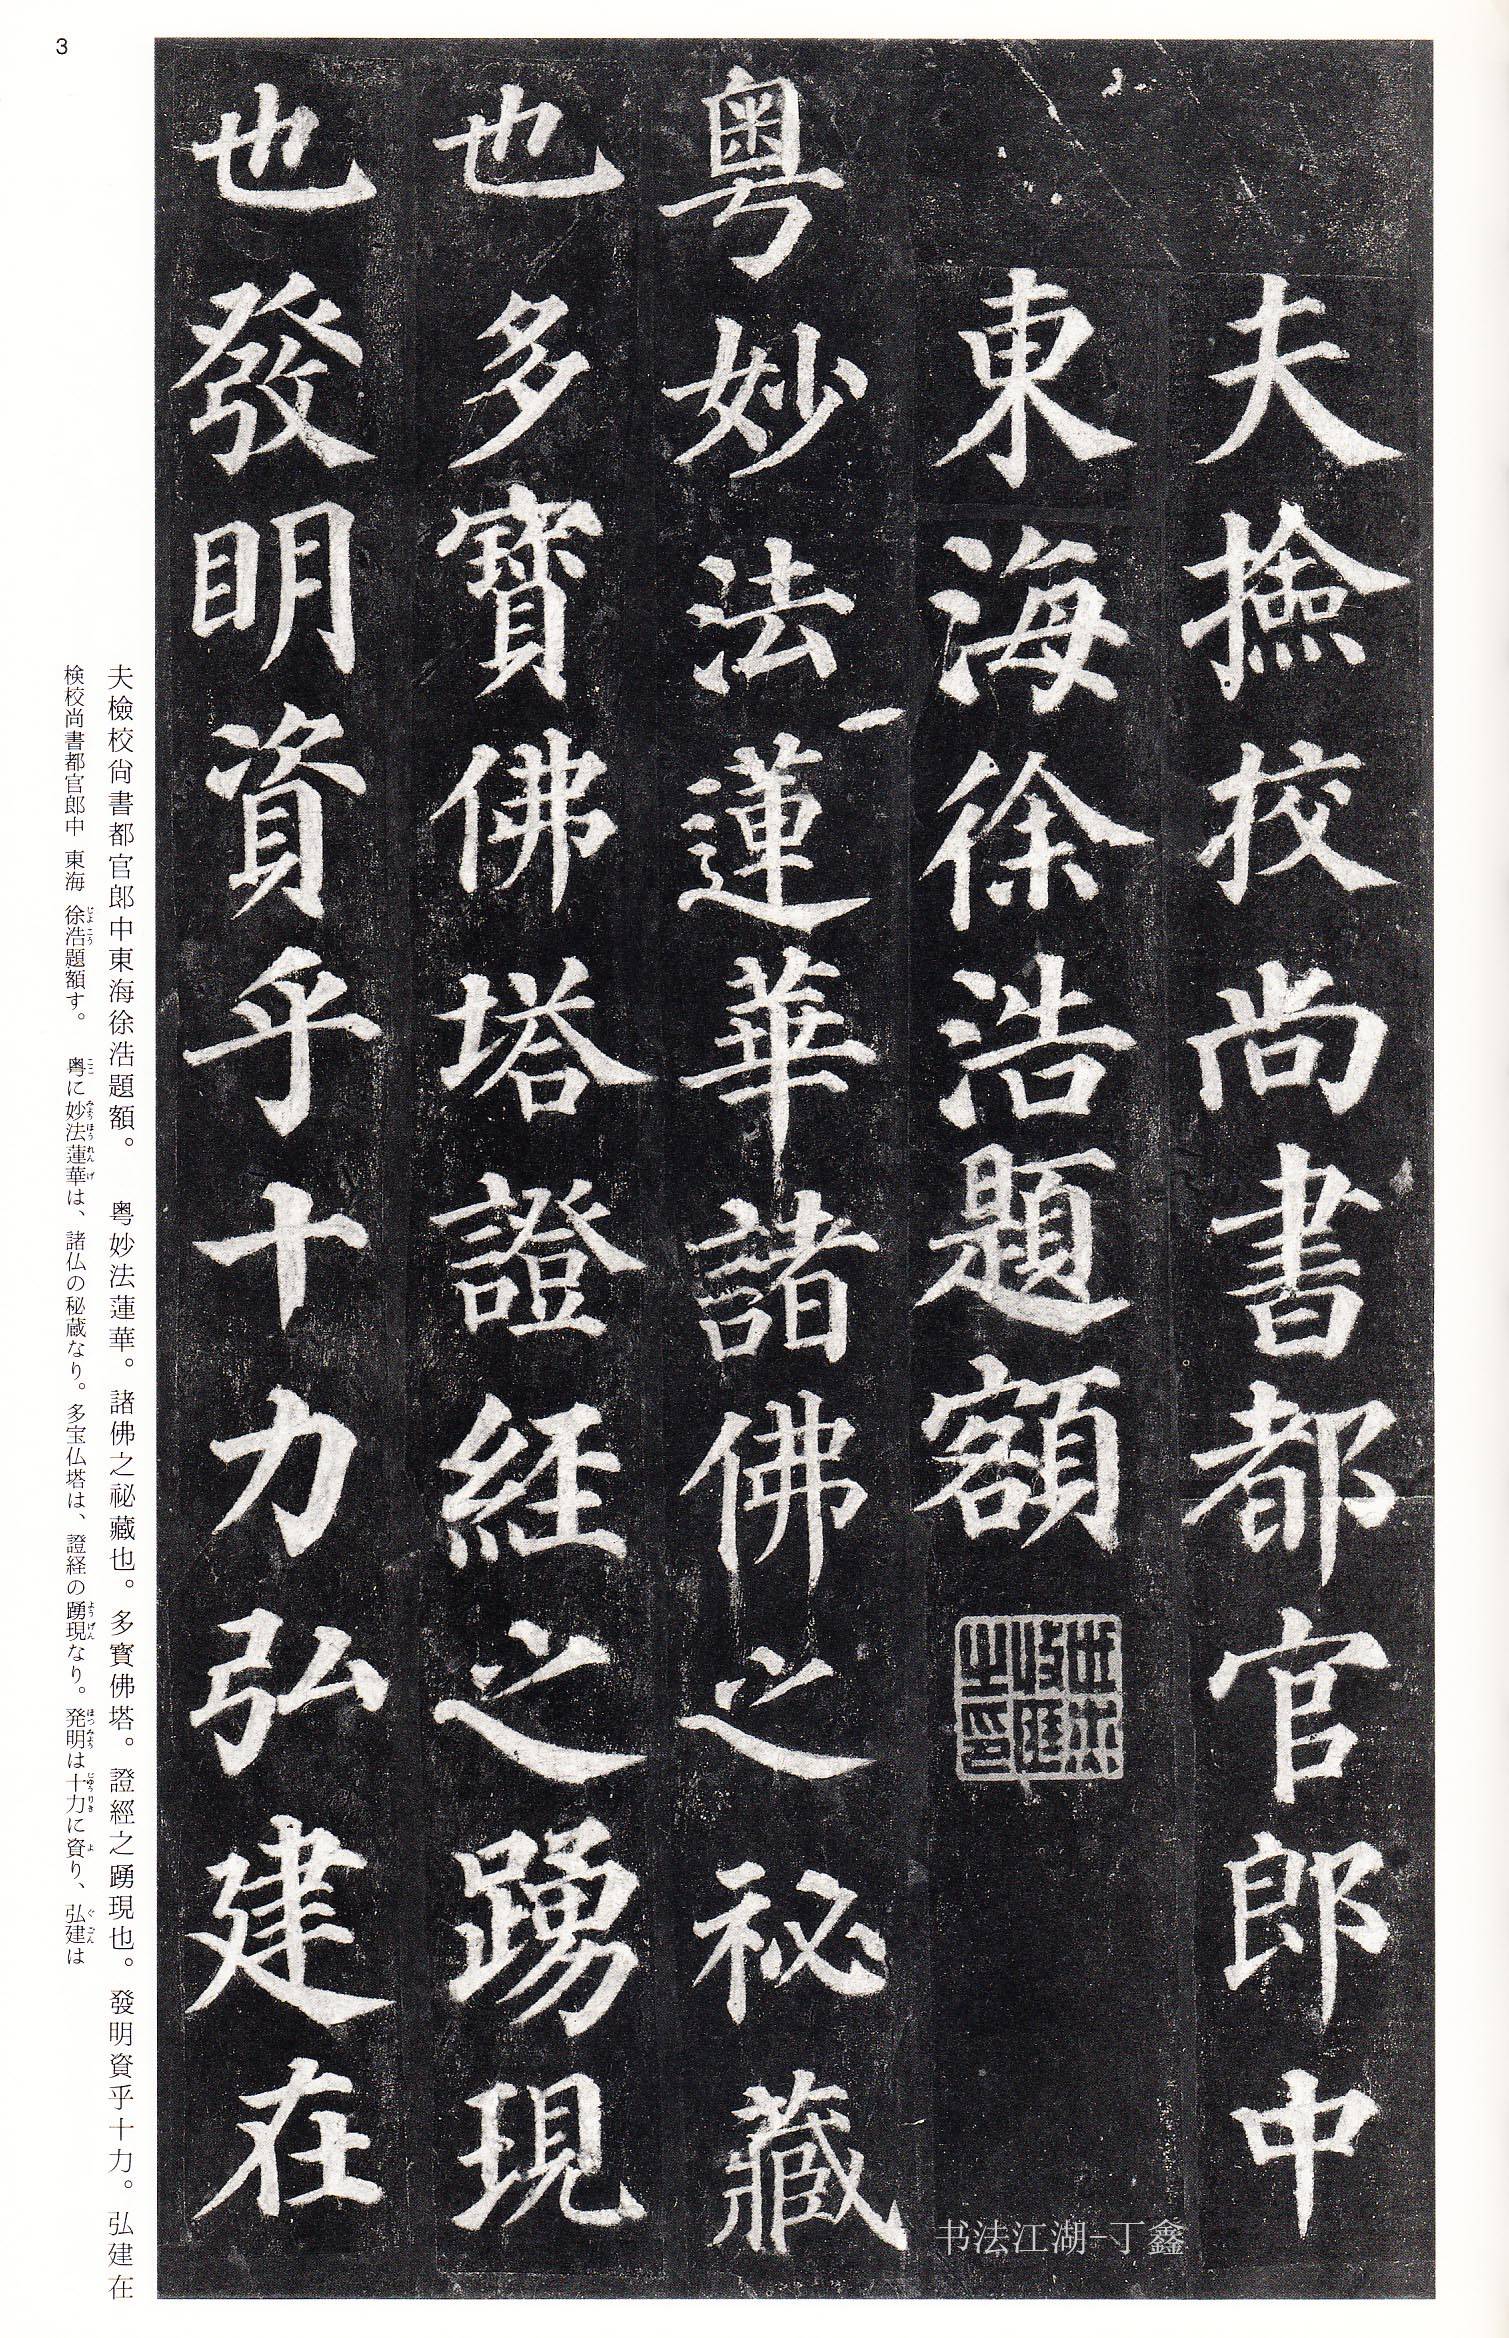 夫撿挍尚書都官郎中
東海徐浩題額
粤妙法蓮華諸佛之祕藏
也多寶佛塔證經之踴現
也發明資乎十力弘建在
夫檢校尙書都官郞中東海徐浩題額。 粤妙法蓮華。諸佛之祕藏也。多寶佛塔。證經之踴現也。發明資乎十力。弘建在
検校尚書都官郎中 東海 徐浩題額す。 粤に妙法蓮華は、諸仏の秘蔵なり。多宝仏塔は、證経の踴現なり。発明は十力に資り、弘建は
3
书法江湖-丁鑫